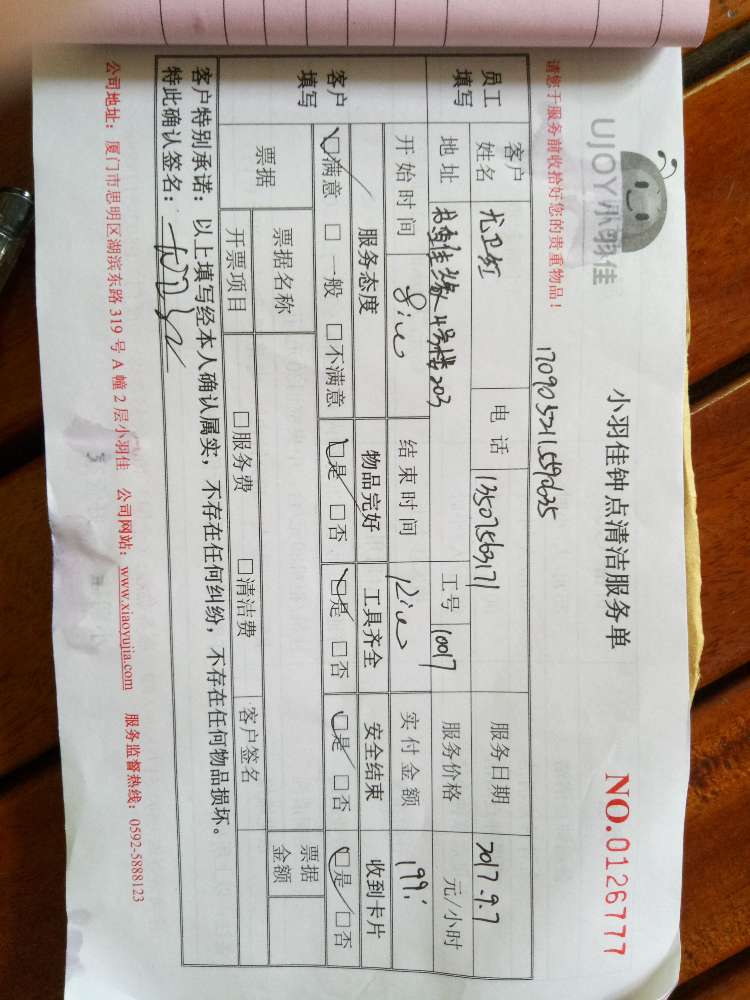 UJOY小羽佳
小羽佳钟点清洁服务单
NO.0126777
请您于服务前收拾好您的贵重物品！
17090521559635
员工填写
客户姓名 尤卫红 电话 13507569171 服务日期 2017.9.7
地址 佳缘4号楼203 工号 10017 服务价格 元/小时
开始时间 结束时间 实付金额 199.
客户填写
服务态度 物品完好 工具齐全 安全结束 收到卡片
□满意 □一般 □不满意 □是 □否 □是 □否 □是 □否 □是 □否
票据 票据名称 票据金额
开票项目 □服务费 □清洁费 客户签名
客户特别承诺：以上填写经本人确认属实，不存在任何纠纷，不存在任何物品损坏。
特此确认签名：
公司地址：厦门市思明区湖滨东路319号A幢2层小羽佳 公司网站：www.xiaoyujia.com 服务监督热线：0592-5888123